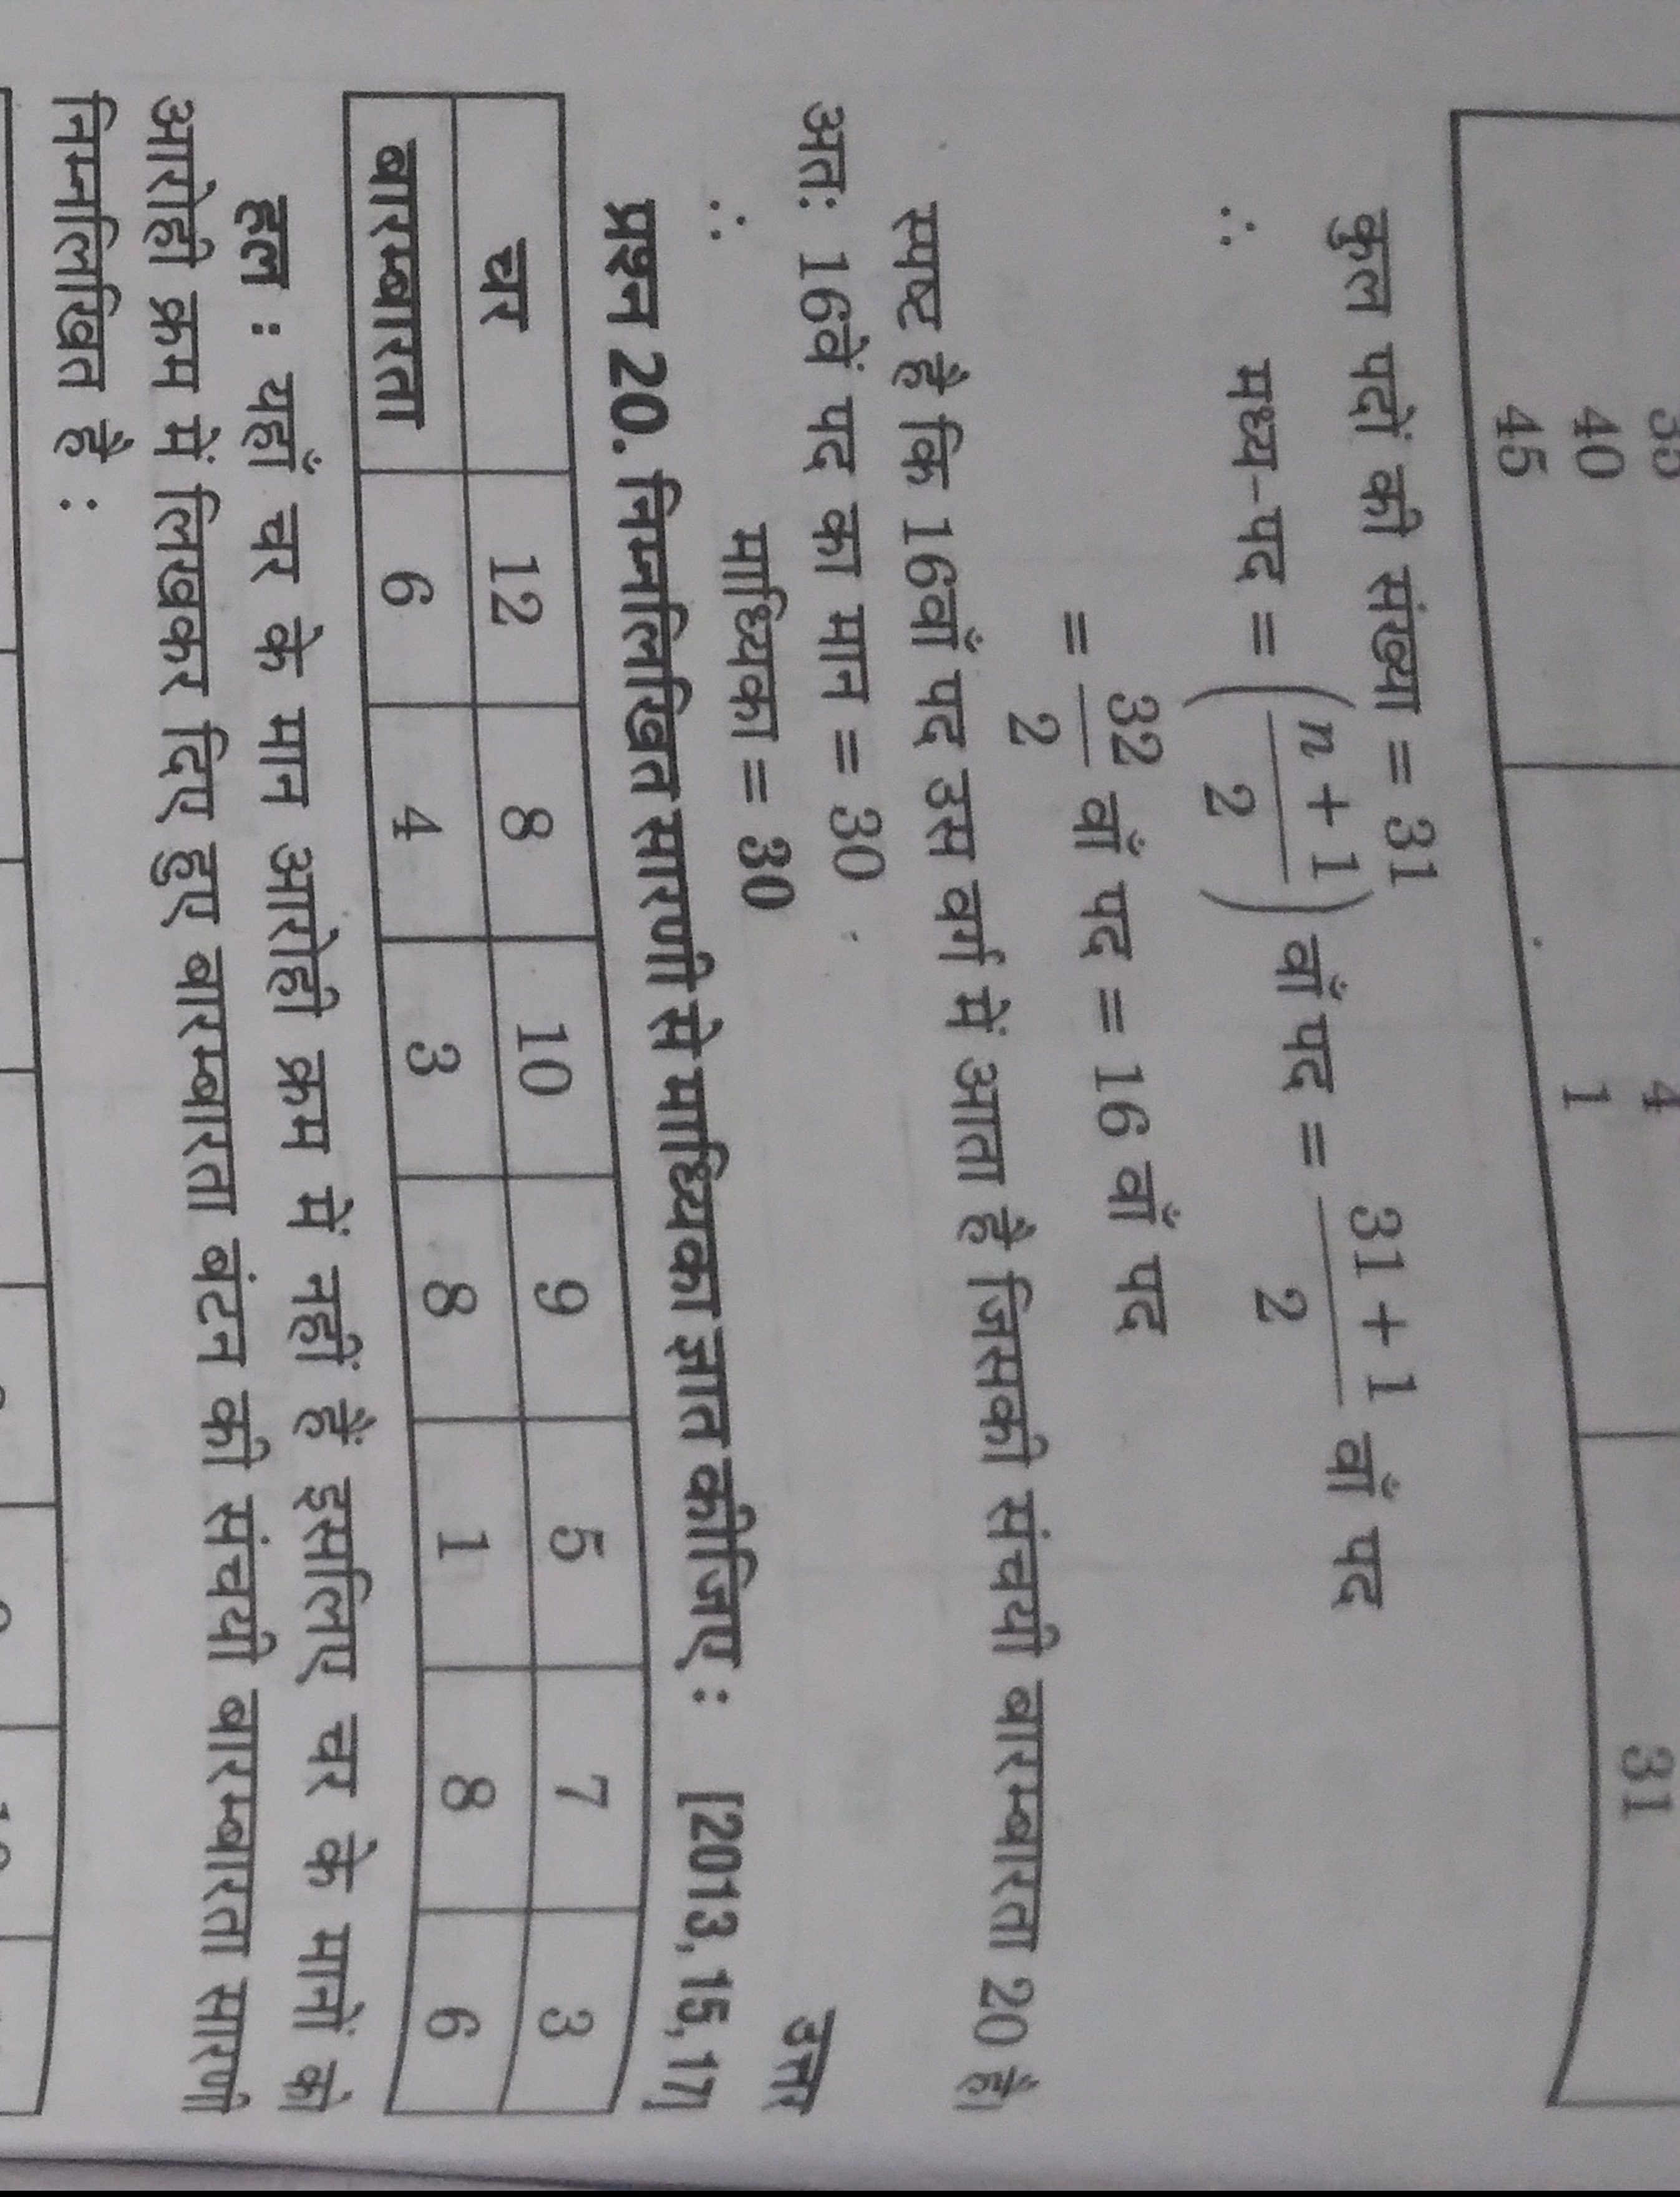 40
45
4
1
31
कुल पदों की संख्या = 31
∴ मध्य-पद = (n + 1 / 2) वाँ पद = 31 + 1 / 2 वाँ पद
= 32 / 2 वाँ पद = 16 वाँ पद
स्पष्ट है कि 16वाँ पद उस वर्ग में आता है जिसकी संचयी बारम्बारता 20 है।
अतः 16वें पद का मान = 30
∴ माध्यिका = 30 उत्तर
प्रश्न 20. निम्नलिखित सारणी से माध्यिका ज्ञात कीजिए : [2013, 15, 17]
चर 12 8 10 9 5 7 3
बारम्बारता 6 4 3 8 1 8 6
हल : यहाँ चर के मान आरोही क्रम में नहीं हैं इसलिए चर के मानों को
आरोही क्रम में लिखकर दिए हुए बारम्बारता बंटन की संचयी बारम्बारता सारणी
निम्नलिखित है :